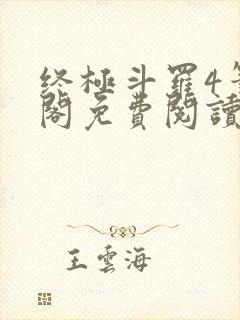 终極斗羅4筆
閣免費閱讀
王雲海